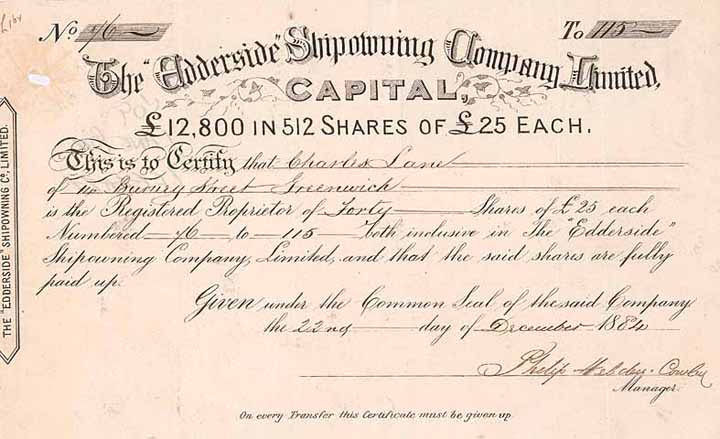 No. 76 To 115
The "Edderside" Shipowning Company, Limited,
CAPITAL,
£12,800 IN 512 SHARES OF £25 EACH.
This is to Certify that Charles Lane
of Street Greenwich
is the Registered Proprietor of Forty Shares of £25 each
Numbered 76 to 115 both inclusive in The "Edderside"
Shipowning Company, Limited, and that the said shares are fully
paid up.
Given under the Common Seal of the said Company
the 22nd day of December 1884
Philip
Manager.
On every Transfer this Certificate must be given up.
THE "EDDERSIDE" SHIPOWNING CO., LIMITED.